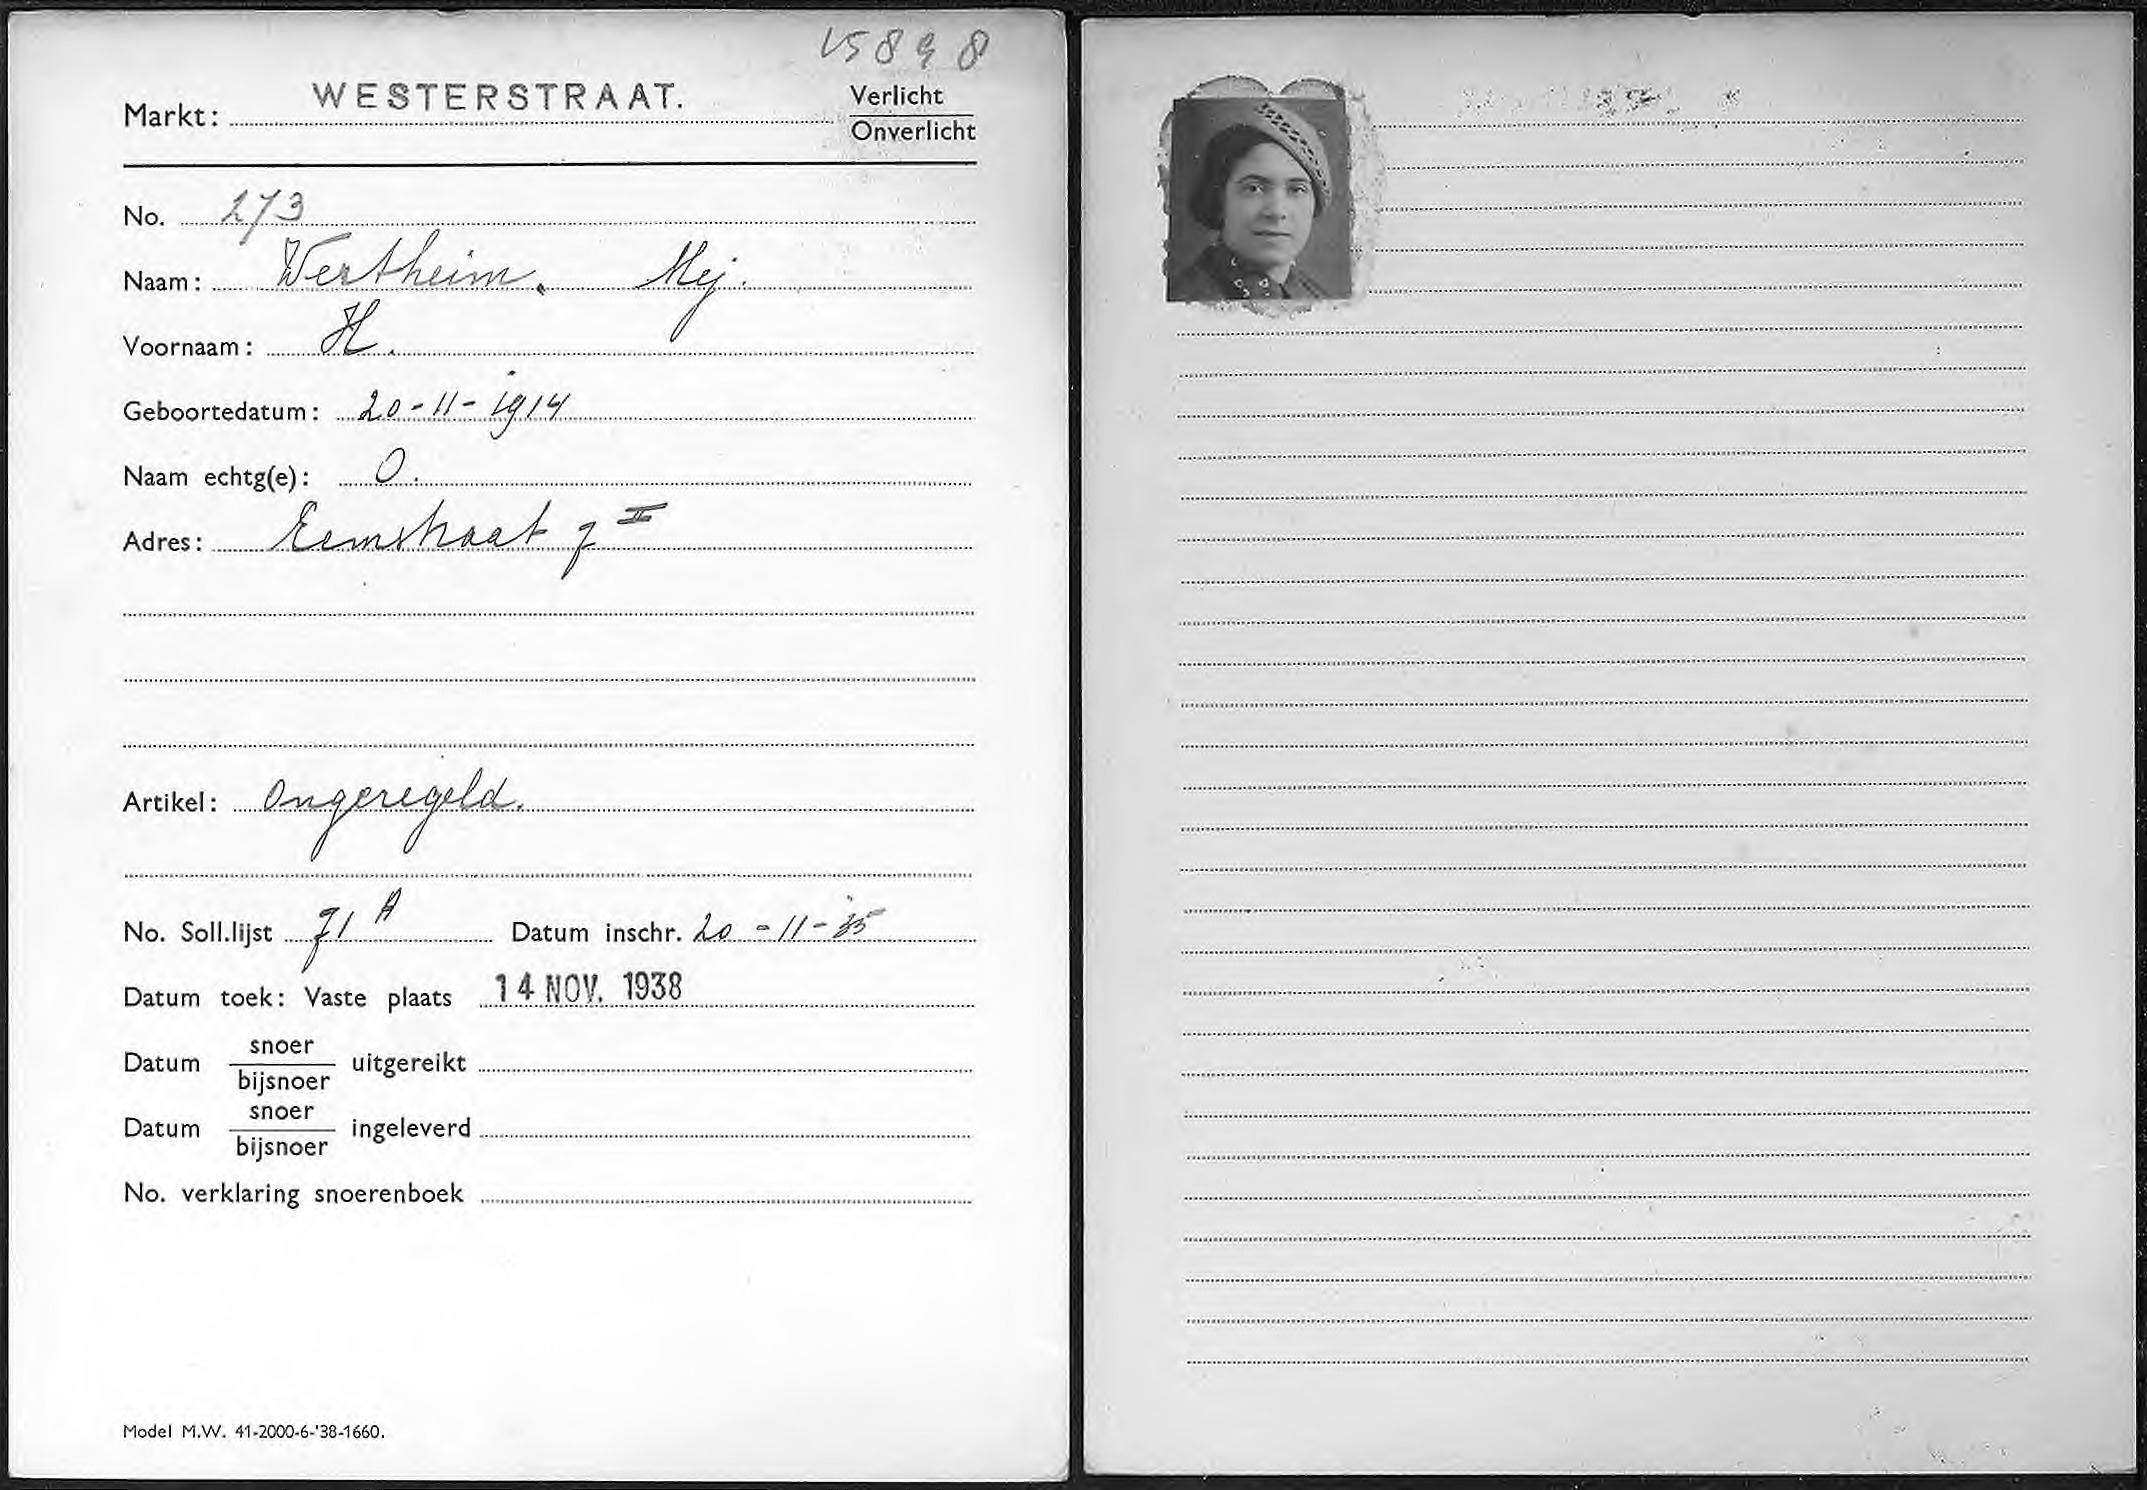 15898
Markt: WESTERSTRAAT. Verlicht
Onverlicht
No. 273
Naam: Wertheim. Mej.
Voornaam: H.
Geboortedatum: 20-11-1914
Naam echtg(e): O.
Adres: Eemstraat 7 II
Artikel: Ongeregeld.
No. Soll.lijst 71 A Datum inschr. 20-11-35
Datum toek: Vaste plaats 14 NOV. 1938
Datum snoer
bijsnoer uitgereikt
Datum snoer
bijsnoer ingeleverd
No. verklaring snoerenboek
Model M.W. 41-2000-6-'38-1660.